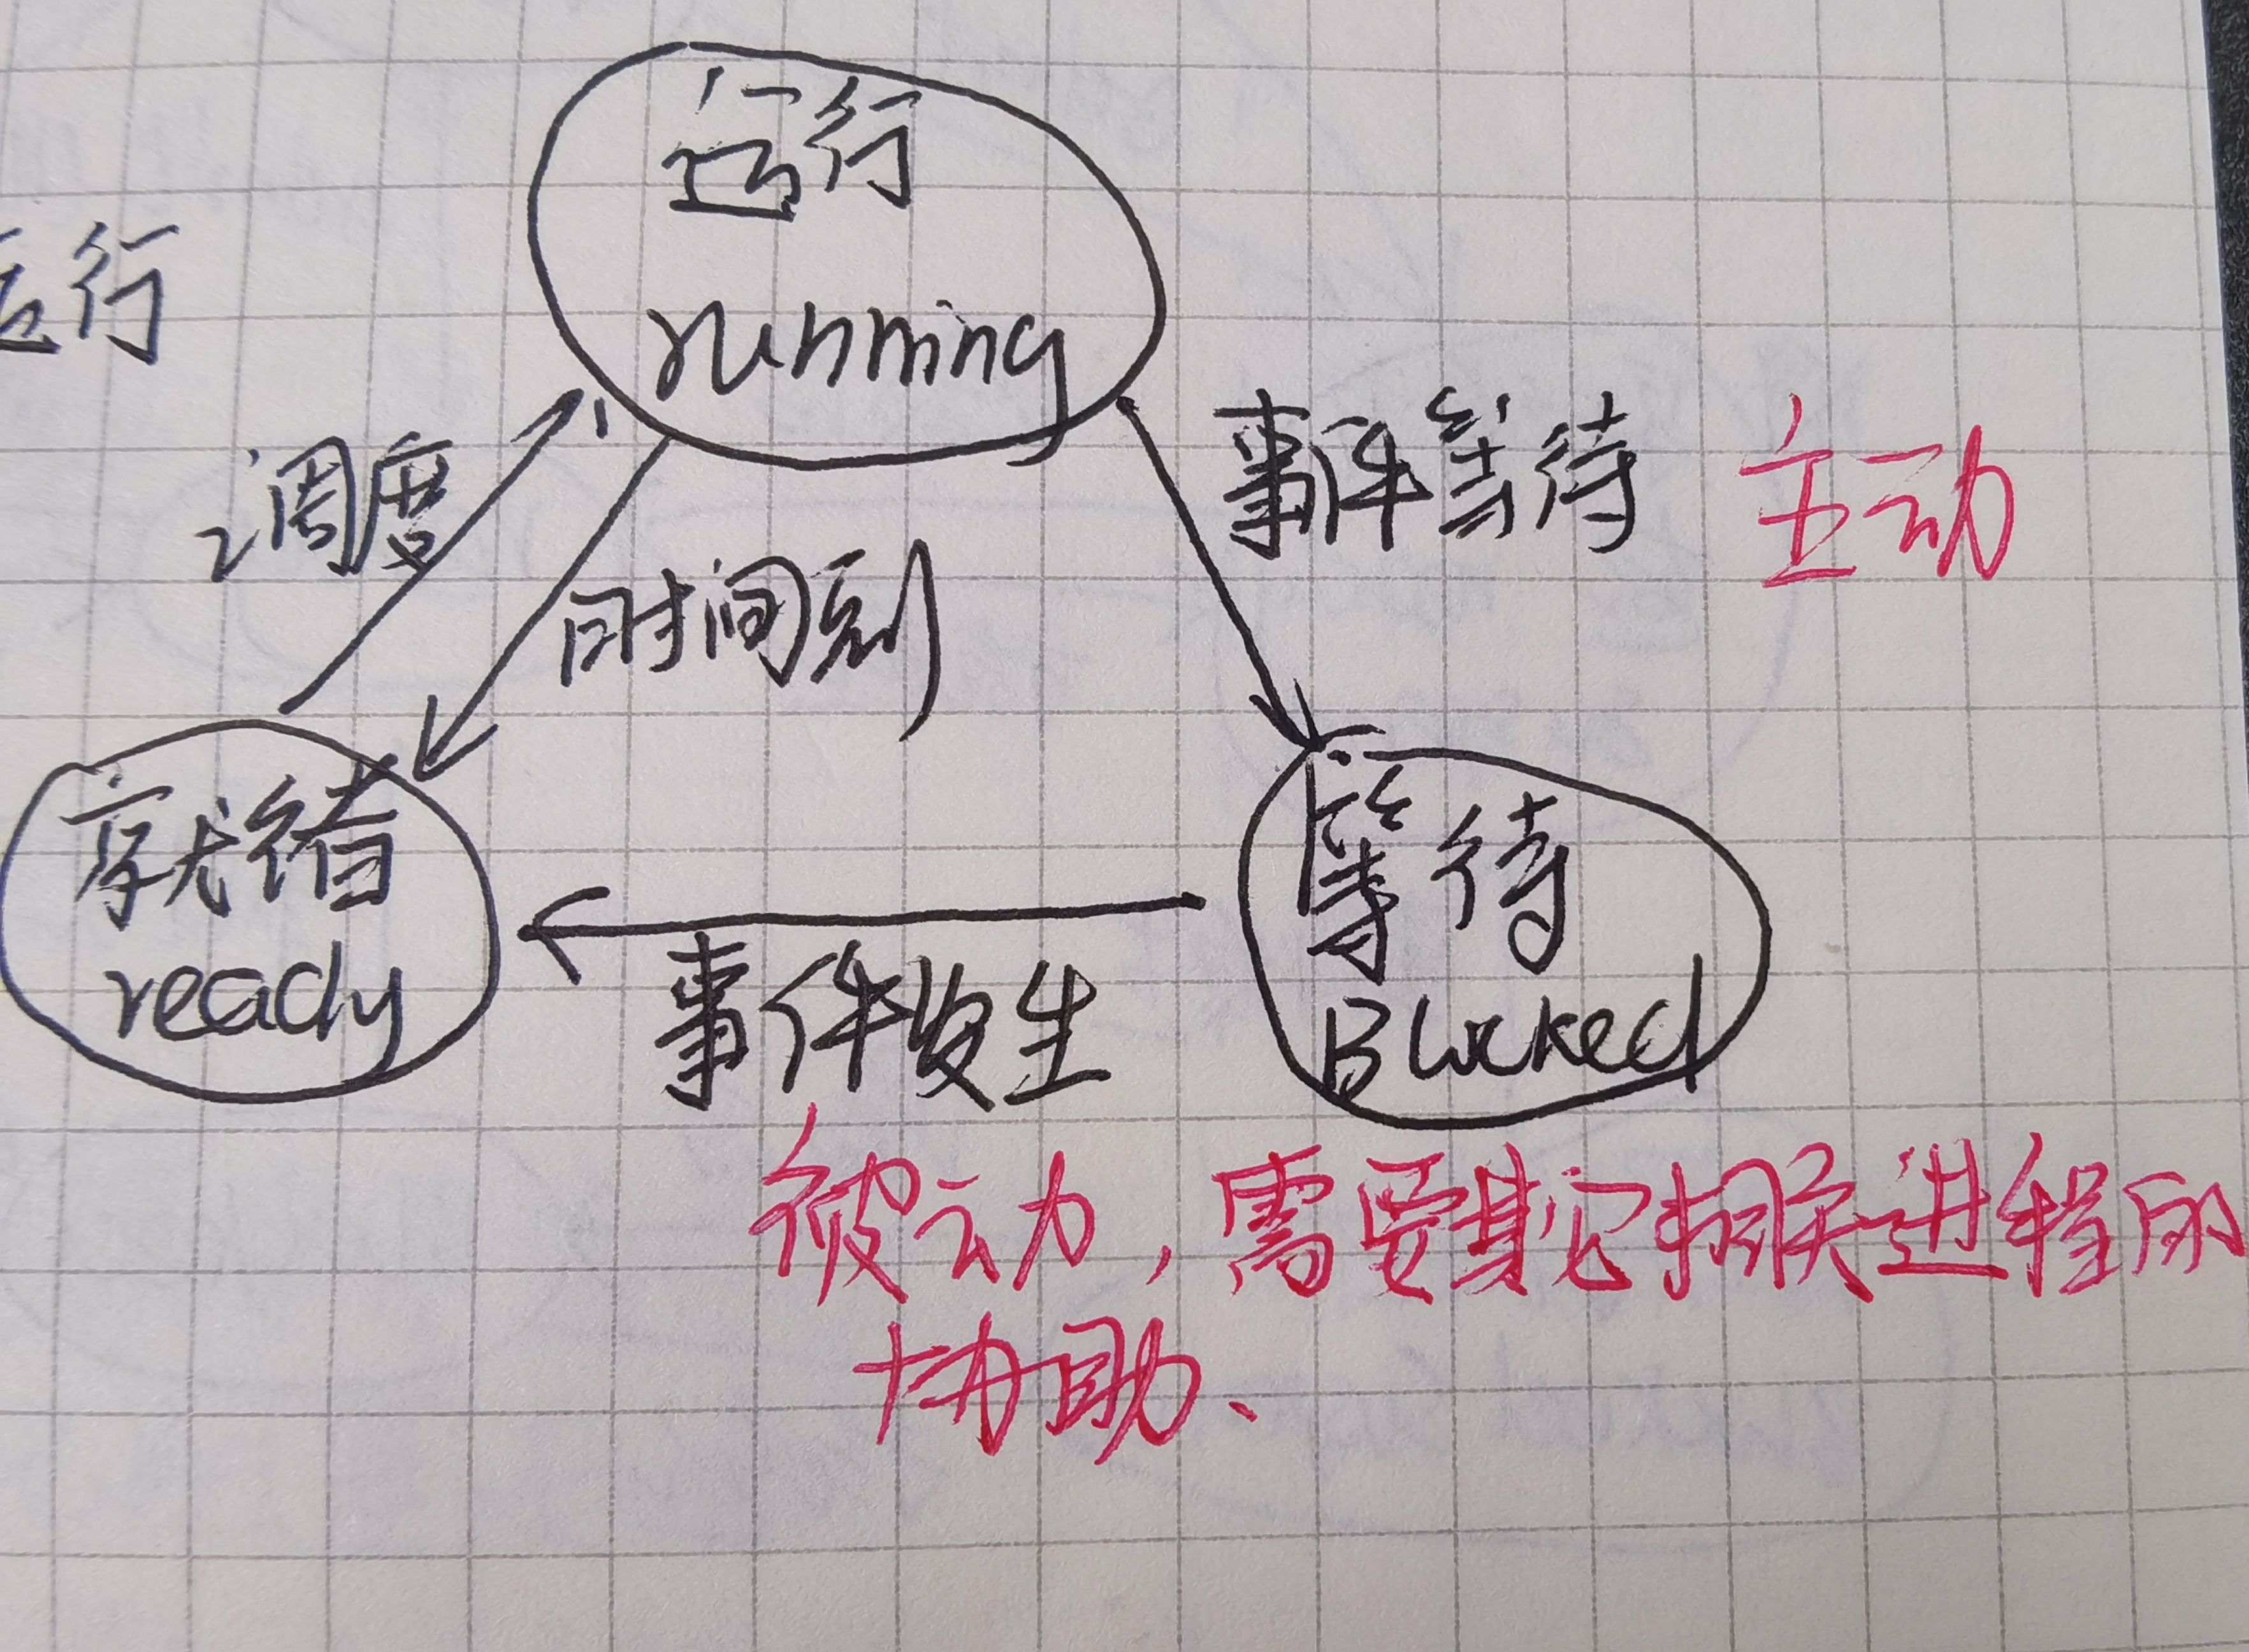 运行
running
运行
调度
事件等待 主动
时间到
就绪
ready
等待
Blocked
事件发生
被动，需要其它相关进程的
协助、